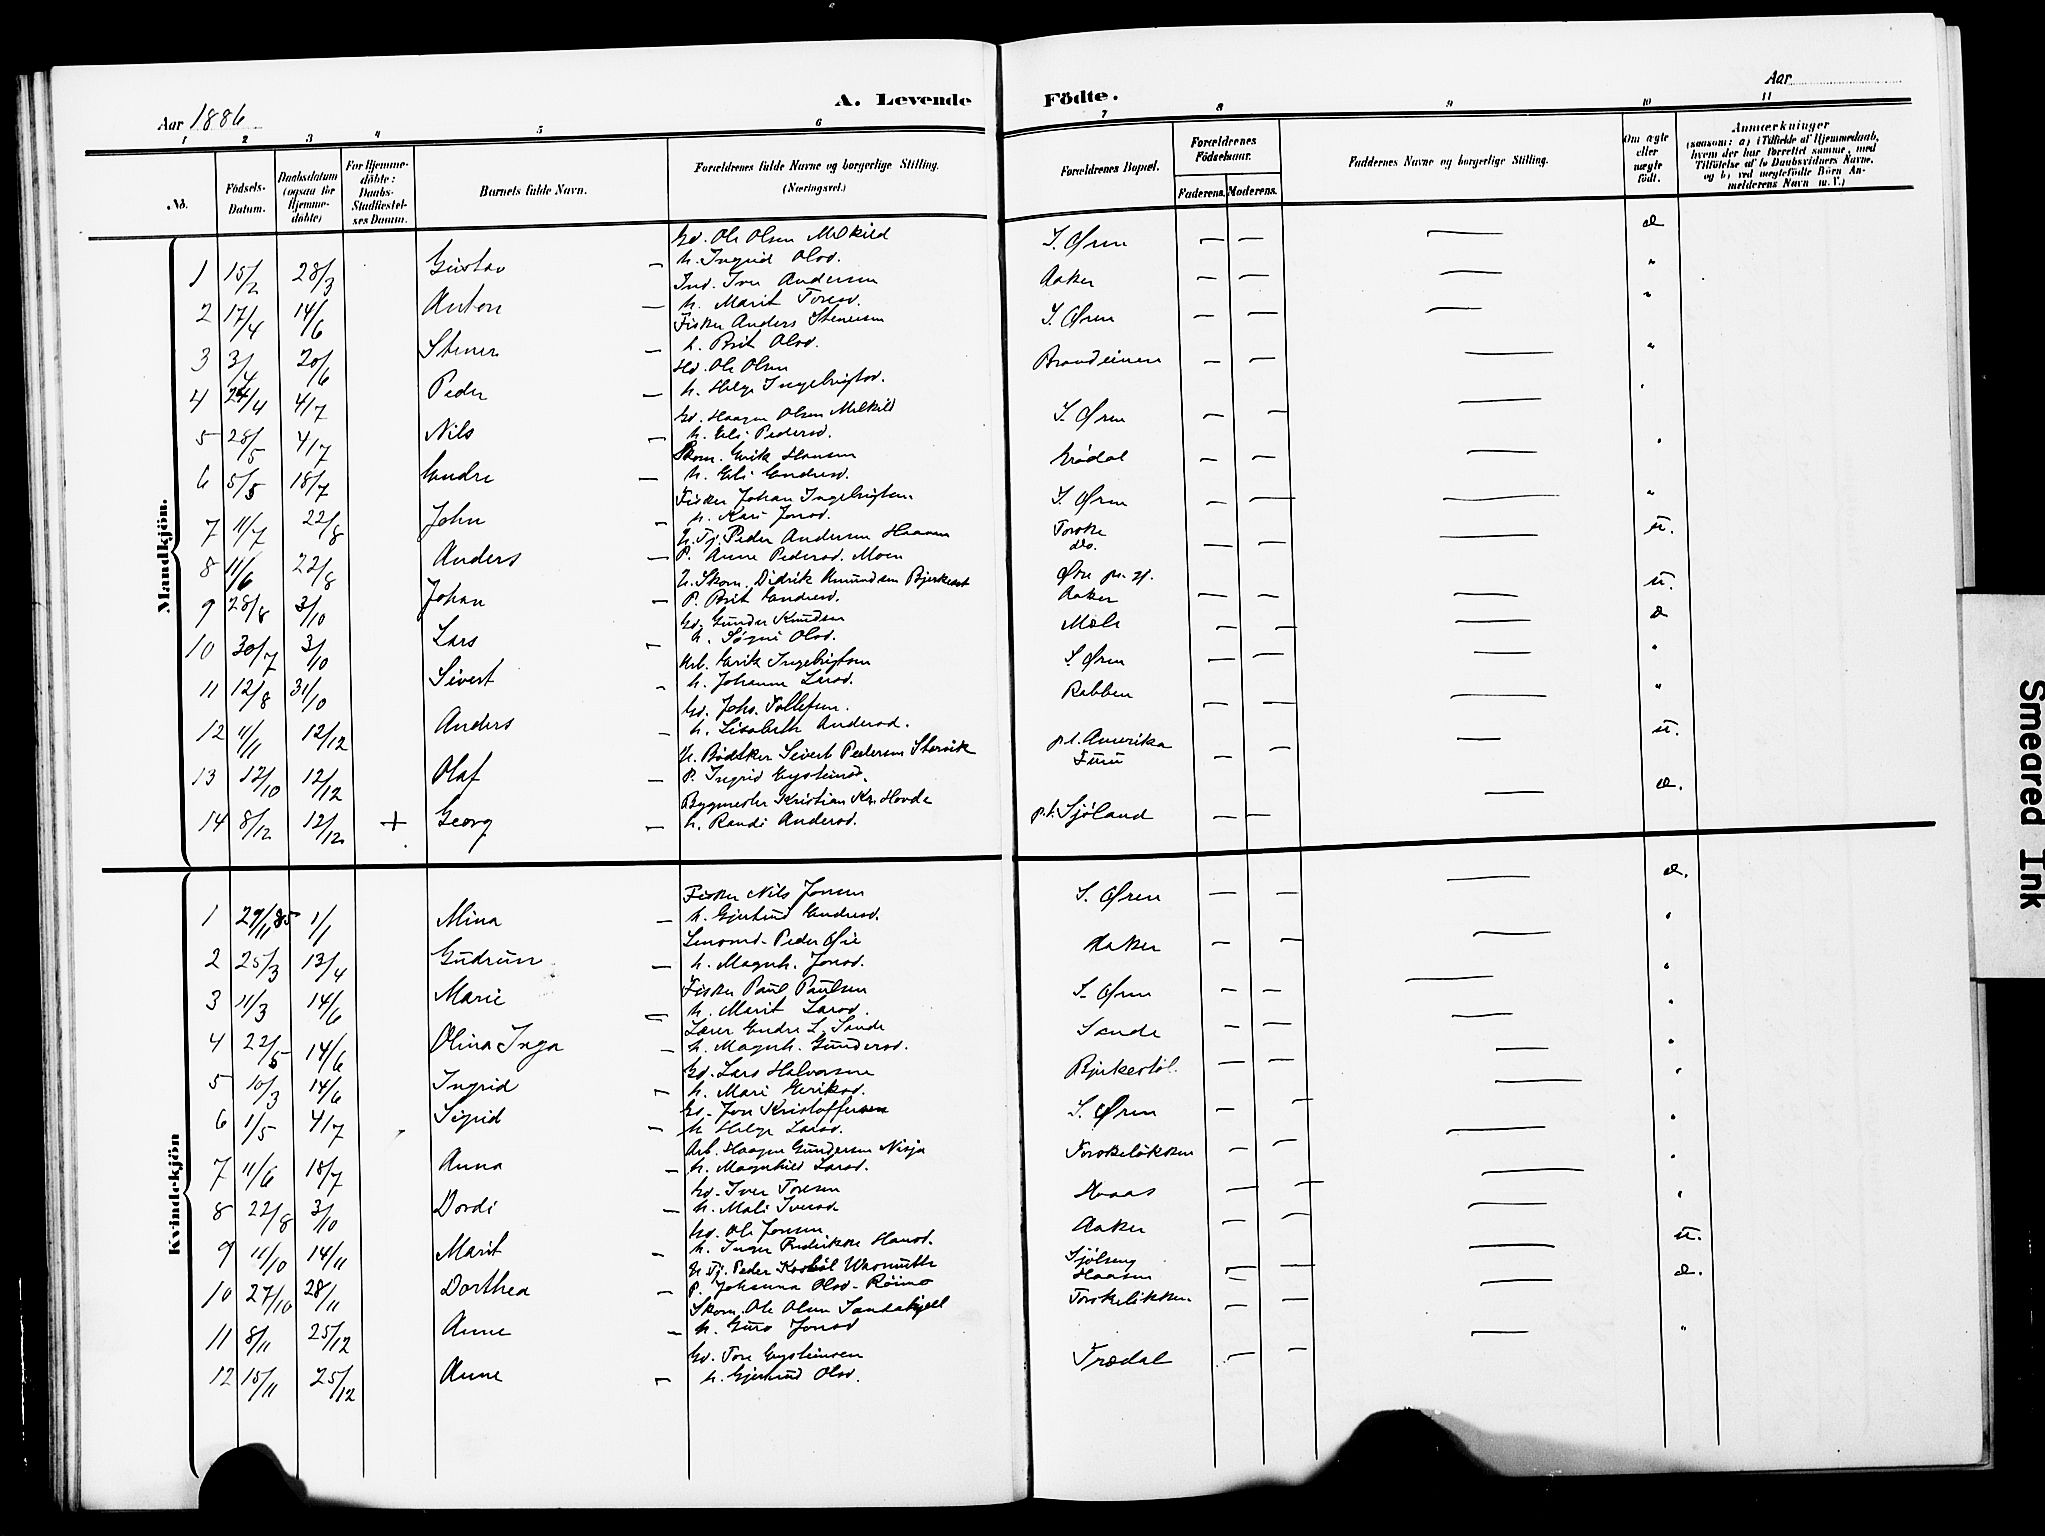 A. Levende Födte.
Aar 1886
Aar
1 2 3 4 5 6 7 8 9 10 11
No.
Födsels-Datum.
Daabsdatum (ogsaa for Hjemmedöbte)
For Hjemmedöbte: Daabs-Stadfæstelses Datum.
Barnets fulde Navn.
Forældrenes fulde Navne og borgerlige Stilling. (Næringsvei.)
Forældrenes Bopæl.
Forældrenes Födselsaar.
Faderens. Moderens.
Faddernes Navne og borgerlige Stilling.
Om ægte eller uægte födt.
Anmærkninger (saasom: a) i Tilfælde af Hjemmedaab, hvem der har forrettet samme, med Tilföielse af to Daabsvidners Navne, og b) ved uægtefödte Börn Anmelderens Navn m. V.)
Mandkjön.
1 15/2 28/3 Gustav — Gd. Ole Olsen Melkild S. Øren — — — æ
h. Ingrid Olsd.
2 17/4 14/6 Anton — Ind. Iver Andersen Aaker — — — "
h. Marit Toresd.
3 3/4 20/6 Stener — Fisker Anders Stenersen S. Øren — — — "
h. Brit Olsd.
4 24/4 4/7 Peder — Hd. Ole Olsen Brandeinen — — — "
h. Helge Ingebrigtsd.
5 28/5 4/7 Nils — Gd. Haagen Olsen Melkild S. Øren — — — "
h. Eli Pedersd.
6 5/5 18/7 Endre — Skom. Erik Hansen — — — "
h. Eli Endresd.
7 11/7 22/8 John — Fisker Johan Ingebrigtsen S. Øren — — — "
h. Kari Jonsd.
8 11/6 22/8 Anders — U. Tj. Peder Andersen Haasen Torske — — — u.
P. Anne Pedersd. Moen do.
9 28/8 3/10 Johan — U. Skom. Didrik Amundsen Bjerkestøl Øre pr. gj. — — — u.
P. Brit Endresd. Aaker
10 30/7 3/10 Lars — Gd. Gunder Knudsen Mæle — — — æ
h. Søgni Olsd.
11 12/8 31/10 Sivert — Arb. Erik Ingebrigtsen S. Øren — — — "
h. Johanne Larsd.
12 11/11 12/12 Anders — Gd. Johs. Tollefsen. Rabben — — — "
h. Lisabeth Andersd.
13 12/10 12/12 Olaf — U. Bødtker Sivert Pedersen Storvik p.t. Amerika — — — u.
P. Ingrid Eysteinsd. Furu
14 8/12 12/12 + Georg — Bygmester Kristian Kr. Hovde p.t. Sjöland — — — æ.
h. Randi Andersd.
Kvindekjön
1 29/11 85 1/1 Mina — Fisker Nils Jonsen S. Øren — — — æ.
h. Gjertrud Endresd.
2 25/3 13/4 Gudrun — Lensmd. Peder Øie Aaker — — — "
h. Magnh. Jonsd.
3 11/3 14/6 Marie — Fisker Paul Paulsen S. Øren — — — "
h. Marit Larsd.
4 22/5 14/6 Olina Inga — Lærer Endre L. Sande Sande — — — "
h. Magnh. Gundersd.
5 10/3 14/6 Ingrid — Gd. Lars Halvorsen Bjerkestöl. — — — "
h. Mari Eriksd.
6 1/5 4/7 Sigrid — Gd. Jon Kristoffersen S. Øren — — — "
h. Helge Larsd.
7 11/6 18/7 Anna — Arb. Haagen Gundersen Nisja Torskelökken — — — "
h. Magnhild Larsd.
8 22/8 3/10 Dordi — Gd. Iver Toresen Aaas — — — "
h. Mali Iversd.
9 11/10 14/11 Marit — Gd. Ole Jonsen Aaker — — — "
h. Inger Fredrikke Hansd.
10 27/10 28/11 Dorthea — U. Tj. Peder Kasbøl Wasmuth Sjölseng — — — u.
P. Johanna Olsd. Röimo Haasen
11 8/11 25/12 Anne — Skom. Ole Olsen Sandakjell Torskelökken — — — æ.
h. Guro Jonsd
12 15/11 25/12 Anne — Gd. Tore Eysteinsen Trædal — — — "
h. Gjertrud Olsd.
Smeared Ink